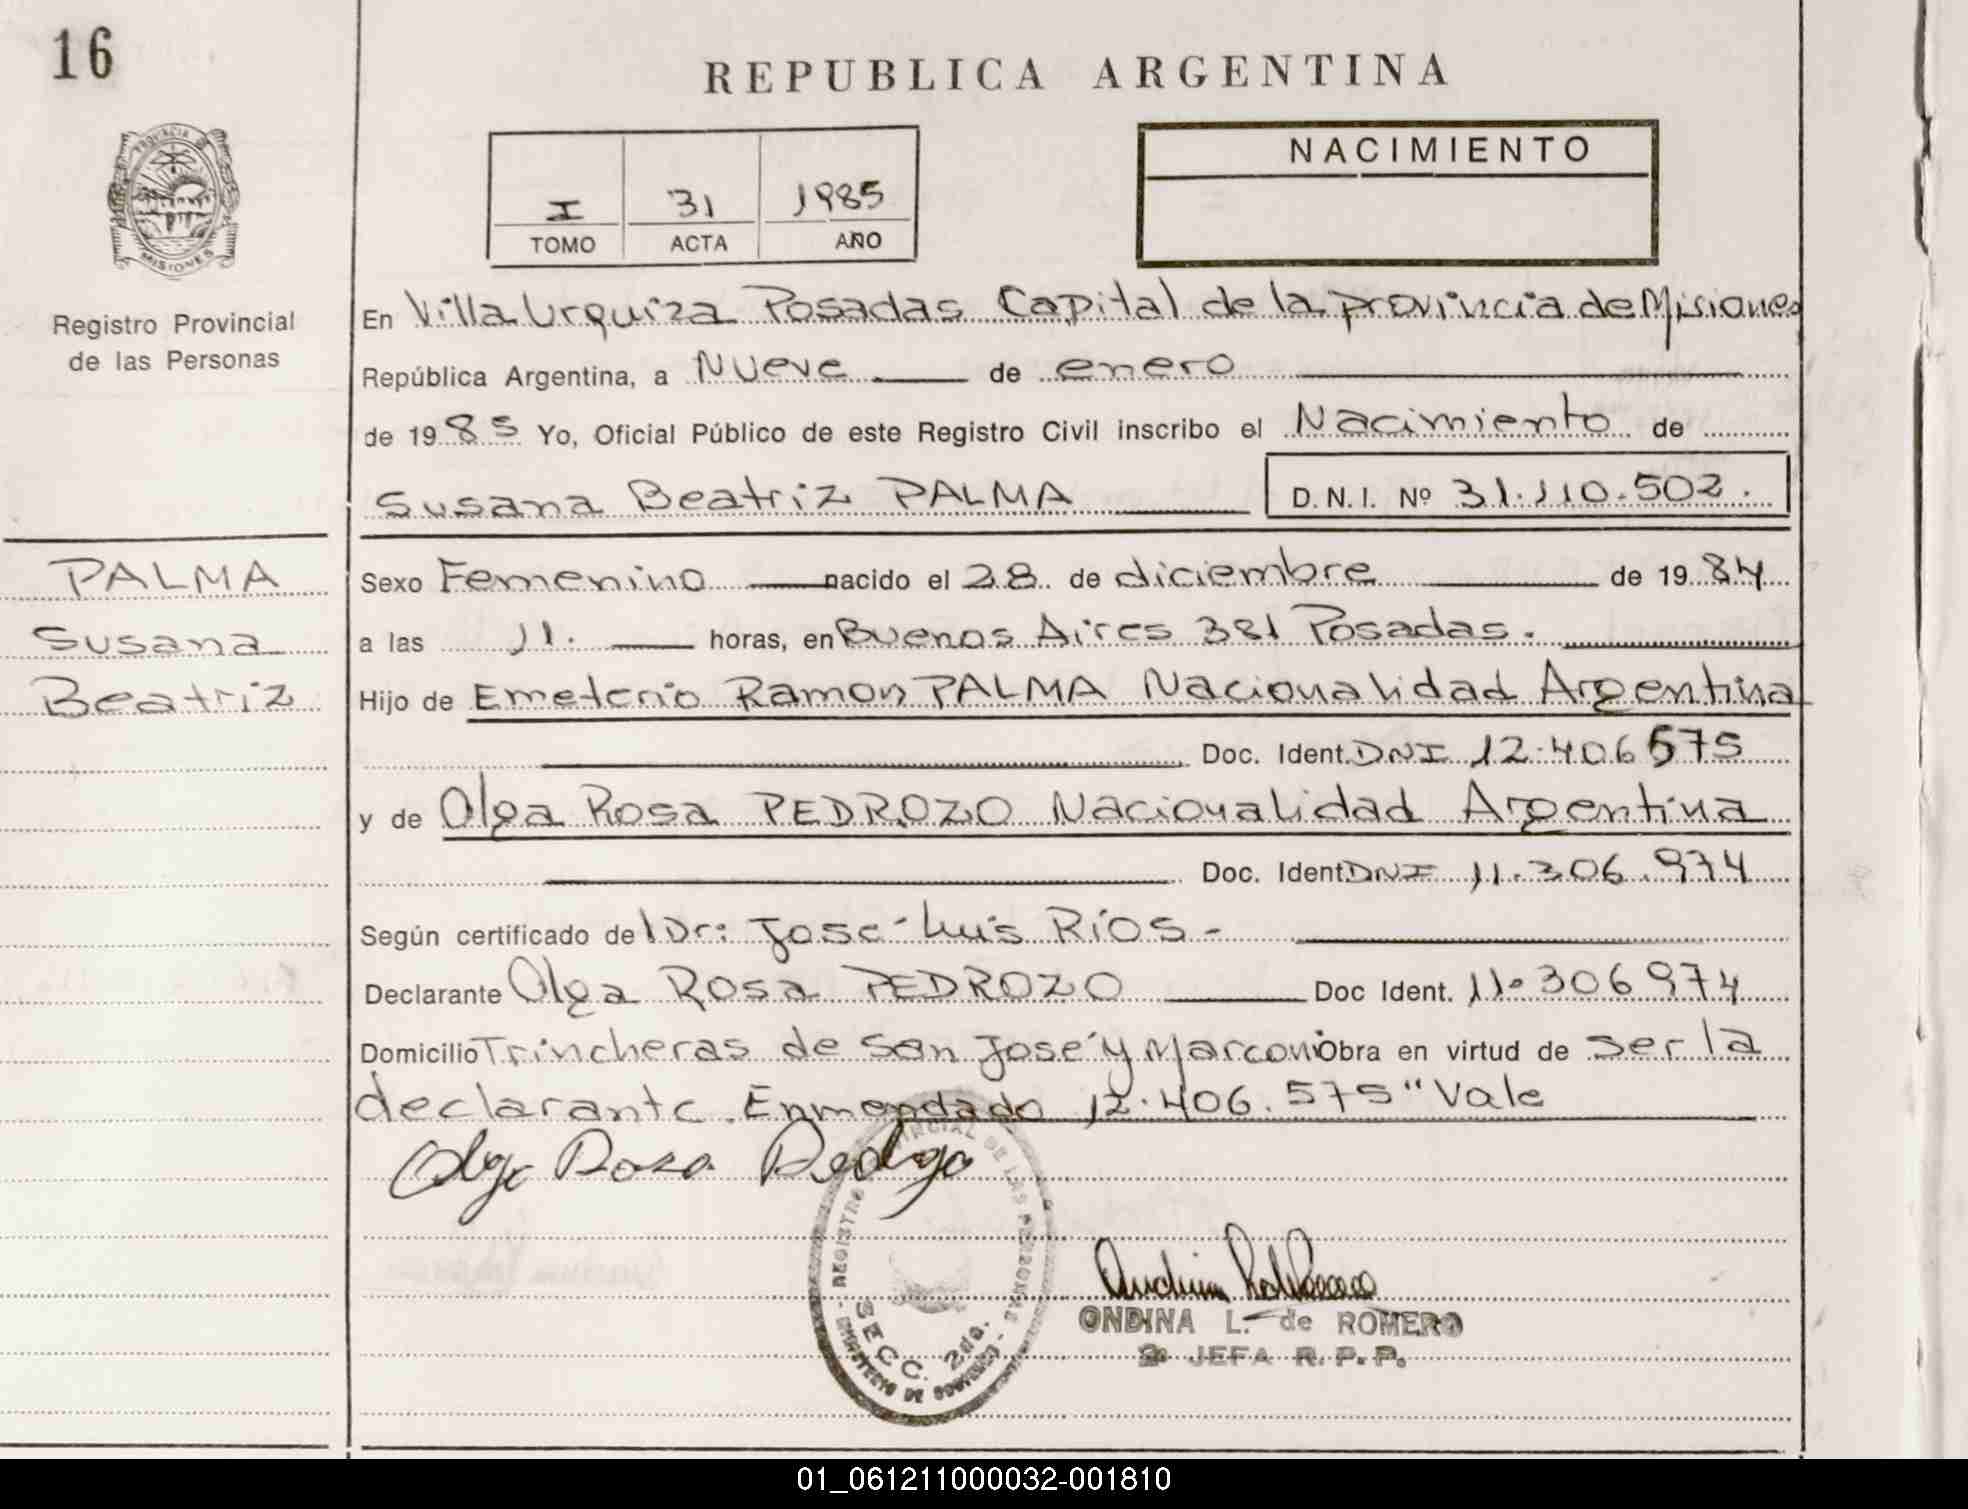 16
REPUBLICA ARGENTINA
PROVINCIA D
MISIONES
Registro Provincial
de las Personas
I 31 1985
TOMO ACTA AÑO
NACIMIENTO
En Villa Urquiza Posadas Capital de la provincia de Misiones
República Argentina, a Nueve de enero
de 1985 Yo, Oficial Público de este Registro Civil inscribo el Nacimiento de
Susana Beatriz PALMA D.N.I. Nº 31.110.502.
PALMA
Susana
Beatriz
Sexo Femenino nacido el 28 de diciembre de 1984
a las 11. horas, en Buenos Aires 381 Posadas.
Hijo de Emeterio Ramon PALMA Nacionalidad Argentina
Doc. Ident. DNI 12.406 575
y de Olga Rosa PEDROZO Nacionalidad Argentina
Doc. Ident DNI 11.306.974
Según certificado del Dr: Jose Luis Ríos -
Declarante Olga Rosa PEDROZO Doc Ident. 11.306974
Domicilio Trincheras de San José y Marconi Obra en virtud de ser la
declarante. Enmendado 12.406.575" Vale
Olga Rosa Pedrozo
REGISTRO PROVINCIAL DE LAS PERSONAS
SECC. 2da.
MINISTERIO DE GOBIERNO
ONDINA L. de ROMERO
JEFA R. P. P.
01_061211000032-001810